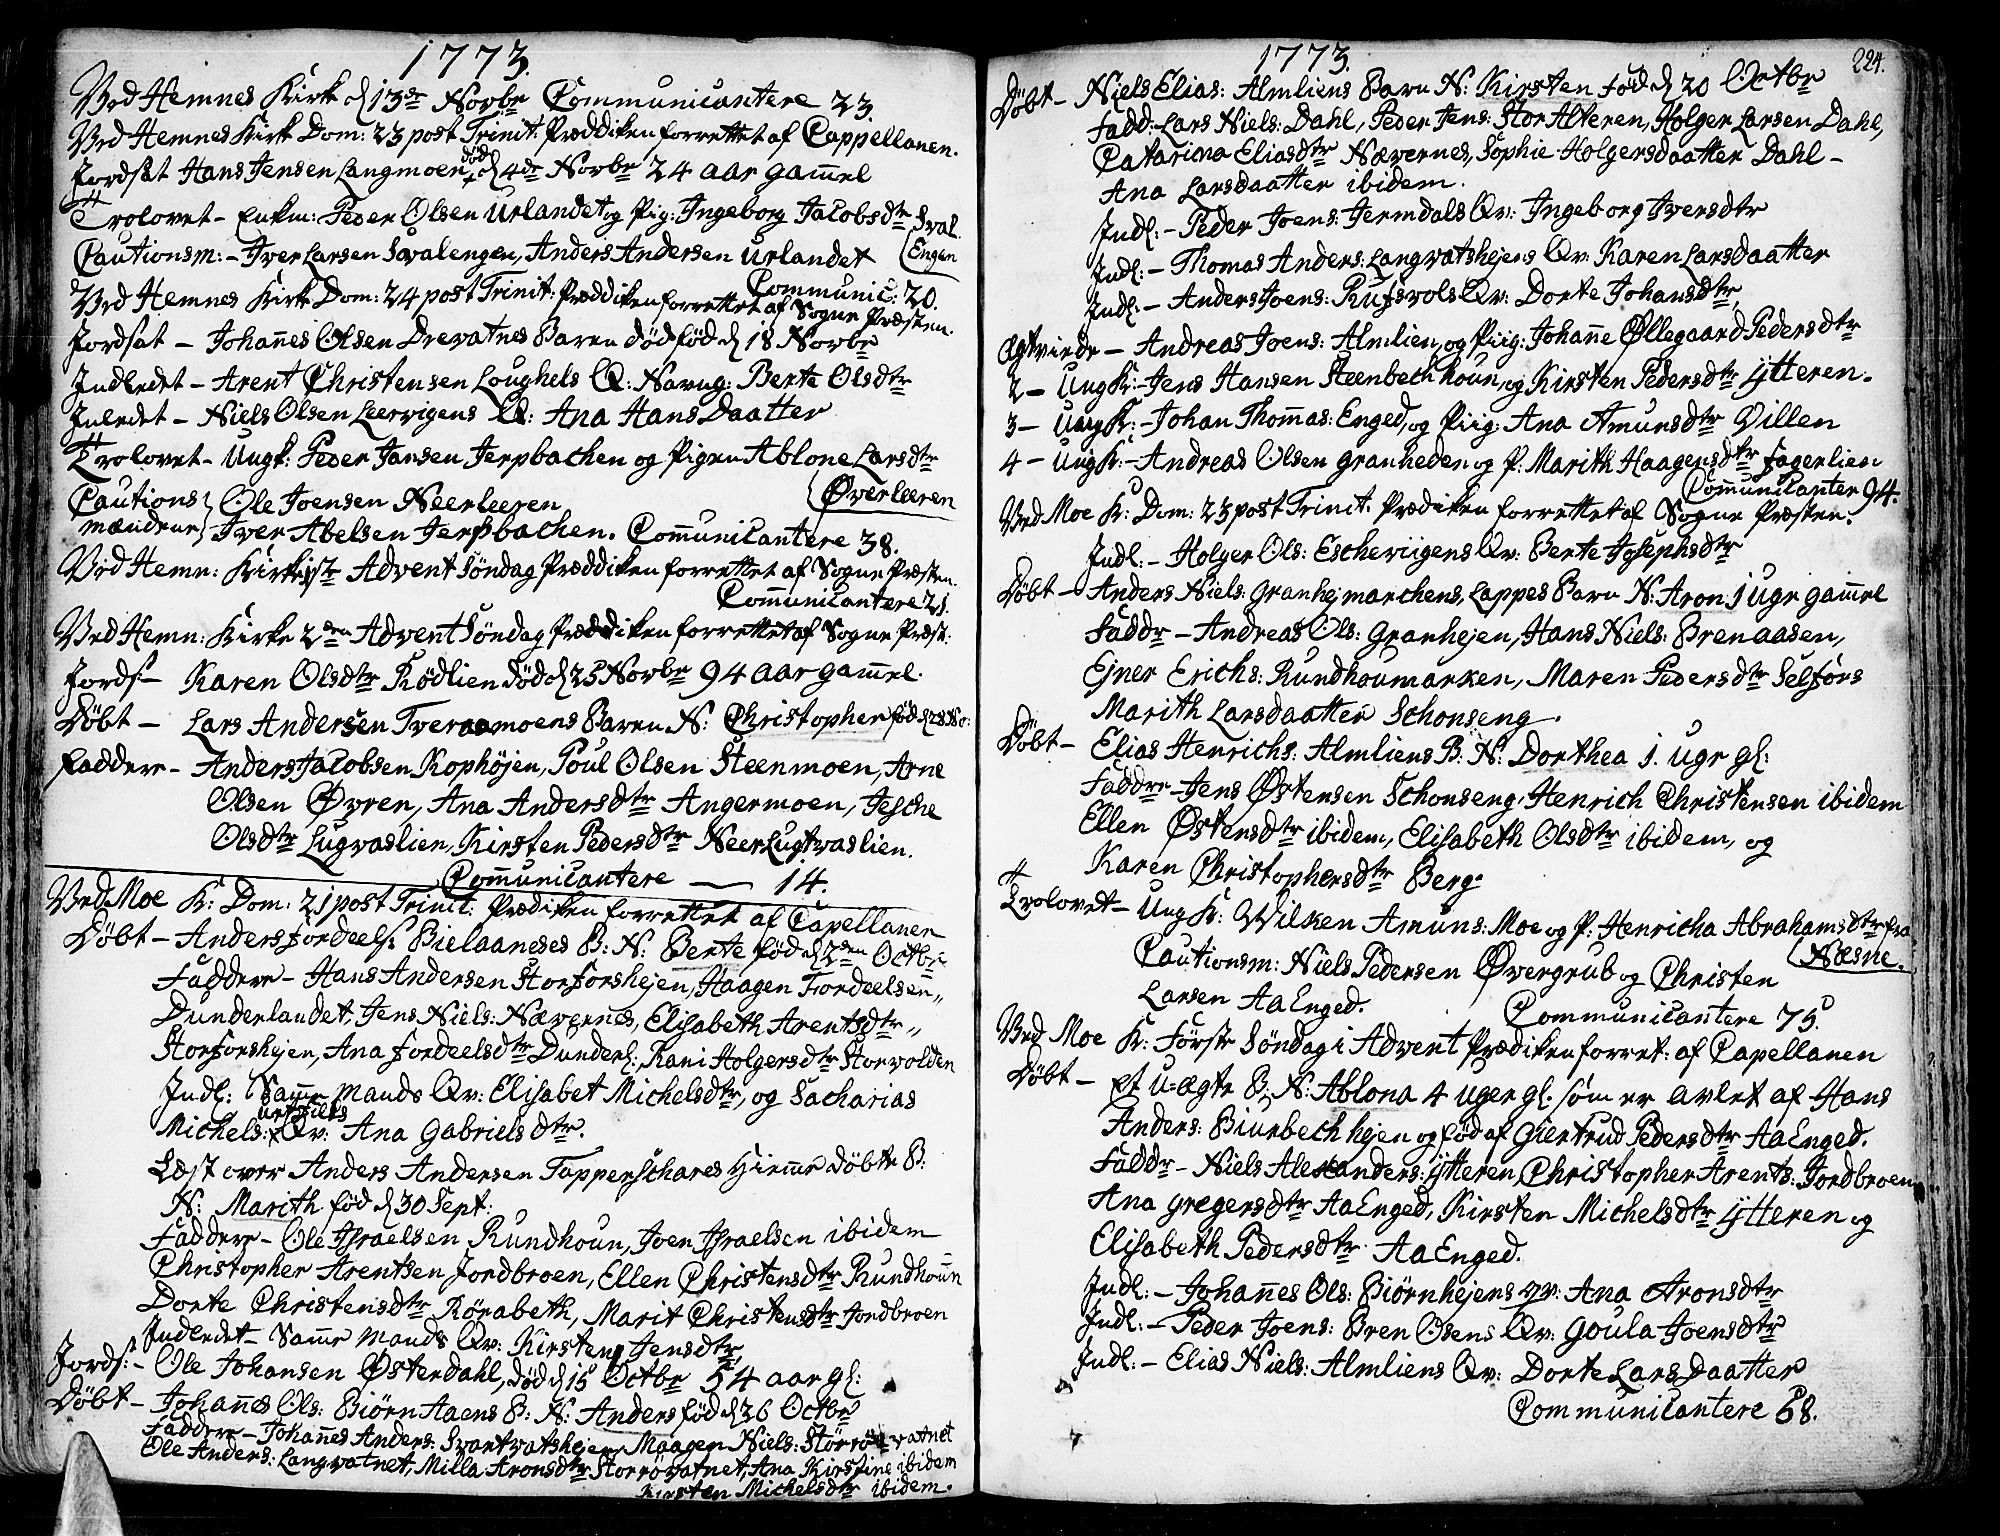 1773.
Ved Hemnes Kirk d 13de Novbr Communicantere 23.
Ved Hemnes Kirk Dom: 23 post Trinit: Præddiken forrettet af Cappellanen.
Jordsat Hans Jensen Langmoen død d 4de Novbr 24 aar gam̄el
Trolovet - Enkm: Peder Olsen Urlandet og Pig: Ingeborg Jacobsdtr Sval
Cautionsm: - Iver Larsen Svalengen, Anders Andersen Urlandet (Engen
Communic: 20.
Ved Hemnes Kirk Dom: 24 post Trinit: Præddiken forrettet af Sogne Præsten.
Jordsat - Johan̄es Olsen Drevatnes Baren dødfød d 18 Novbr
Indledet - Arent Christensen Loughels Q: Navng: Berte Olsdtr
Inledet - Niels Olsen Leervigens Q: Ana Hans Daatter
Trolovet - Ungk: Peder Jansen Jerpbachen og Pigen Ablone Larsdtr
(Øverleeren
Cautions} Ole Joensen Neerleeren
mændene} Iver Abelsen Jerpbachen. Com̄unicantere 38.
Ved Hemn: Kirke 1ste Advent Søndag Præddiken forrettet af Sogne Præsten.
Com̄unicantere 21.
Ved Hemn: Kirke 2den Advent Søndag Præddiken forrettet af Sogne Præst:
Jords: - Karen Olsdtr Rødlien død d 25 Novbr 94 aar gam̄el.
Døbt - Lars Andersen Tveraamoens Baren N: Christopher fød d 28 No:
Faddere - Anders Jacobsen Kophøjen, Poul Olsen Steenmoen, Arne
Olsen Øvren, Ana Andersdtr Angermoen, Jesche
Olsdtr Lugvaslien, Kirsten Pedersdtr NeerLugtvaslien.
Com̄unicantere — 14.
Ved Moe K: Dom: 21 post Trinit: Prædiken forrettet af Capellanen
Døbt - Anders Fordeels: Bielaaneses B: N: Berte fød d 2den Octbr
Faddere - Hans Andersen Storforshejen, Haagen Fordeelsen
Dunderlandet, Jens Niels: Nævernes, Elisabeth Arentsdtr
Storforshejen, Ana Fordeelsdtr Dunderl: Rani Holgersdtr Storvolden
Indl: Sam̄e Mands Qv: Elisabet Michelsdtr, og Sacharias
Michels: Qv: Ana Gabrielsdtr.
Læst over Anders Andersen Tappenschares Hiem̄e døbte B:
N: Marith fød d 30 Sept:
Faddere - Ole Israelsen Rundhoun, Joen Israelsen ibidem
Christopher Arentsen Jordbroen, Ellen Christensdtr Rundhoun
Dorte Christensdtr Rørabeth, Marit Christensdtr Jordbroen
Indledet - Sam̄e Mands Qv: Kirsten Jensdtr
Jords: - Ole Johansen Østerdahl, død d 15 Octbr 54 aar gl:
Døbt - Johan̄es Ols: Biørn Aaens B: N: Anders fød d 26 Octbr
Faddere - Johan̄es Anders: Svartvatshejen, Maagen Niels: Størrøvatnet
Ole Anders: Langvatnet, Milla Aronsdtr Storrøvatnet, Ana Kirstine ibidem
Kirsten Michelsdtr ibidem.
1773.
224.
Døbt - Niels Elias: Almliens Barn N: Kirsten fød d 20 Octbr
Fadd: Lars Niels: Dahl, Peder Jens: Stor Alteren, Holger Larsen Dahl,
Catarina Eliasdtr Nævernes, Sophie Holgersdaatter Dahl -
Ana Larsdaatter ibidem.
Indl: - Peder Joens: Jermdals Qv: Ingeborg Iversdtr
Indl: - Thomas Anders: Langvatshejens Qv: Karen Larsdaatter
Indl: - Anders Joens: Rufsvols Qv: Dorte Johansdtr
Ægtviede - Andreas Joens: Almlien, og Piig: Johan̄e Øllegaard Pedersdtr
2 - Ung K: - Jens Hansen Steenbechhoun, og Kirsten Pedersdtr Ytteren.
3 - Ung K: - Johan Thom̄as: Enged, og Piig: Ana Amunsdtr Villen
4 - Ung K: - Andreas Olsen Granheden og P: Marith Haagensdtr Fagerlien
Com̄unicanter 94.
Ved Moe K: Dom: 23 post Trinit: Prædiken forrettet af Sogne Præsten.
Indl: - Holger Ols: Escheviigens Qv: Berte Josephsdtr
Døbt - Anders Niels: Granhejmarchens, Lappes Barn N: Aron 1 Uge gam̄el
Faddr - Andreas Ols: Granhejen, Hans Niels: Brenaasen,
Ejner Erichs: Rundhoumarken, Maren Pedersdtr Selfors
Marith Larsdaatter Schonseng.
Døbt - Elias Henrichs: Almliens B: N: Dorthea 1. Uge gl:
Faddre - Jens Østensen Schonseng, Henrich Christensen ibidem
Ellen Østensdtr ibidem, Elisabeth Olsdtr ibidem, og
Karen Christophersdtr Berg.
Trolovet - Ung K: Wilken Amuns: Moe og P: Henricha Abrahamsdtr fra
(Næsne.
Cautionsm: Niels Pedersen Øvergrub og Christen
Larsen AaEnged. Communicantere 75.
Ved Moe K: Første Søndag i Advent Prædiken forret: af Capellanen
Døbt - et U-ægte B: N: Ablona 4 Uger gl. som er avlet af Hans
Anders: Biurbechhejen og fød af Giertrud Pedersdtr AaEnged.
Faddr - Niels Alexanders: Ytteren, Christopher Arents: Jordbroen
Ana Gregersdtr AaEnged, Kirsten Michelsdtr Ytteren og
Elisabeth Pedersdtr AaEnged.
Indl: - Johan̄es Ols: Biørnhejens Qv: Ana Aronsdtr
Indl: - Peder Joens: Bren Osens Qv: Goula Joensdtr
Indl: - Elias Niels: Almliens Qv: Dorte Lars Daatter
Communicantere 68.